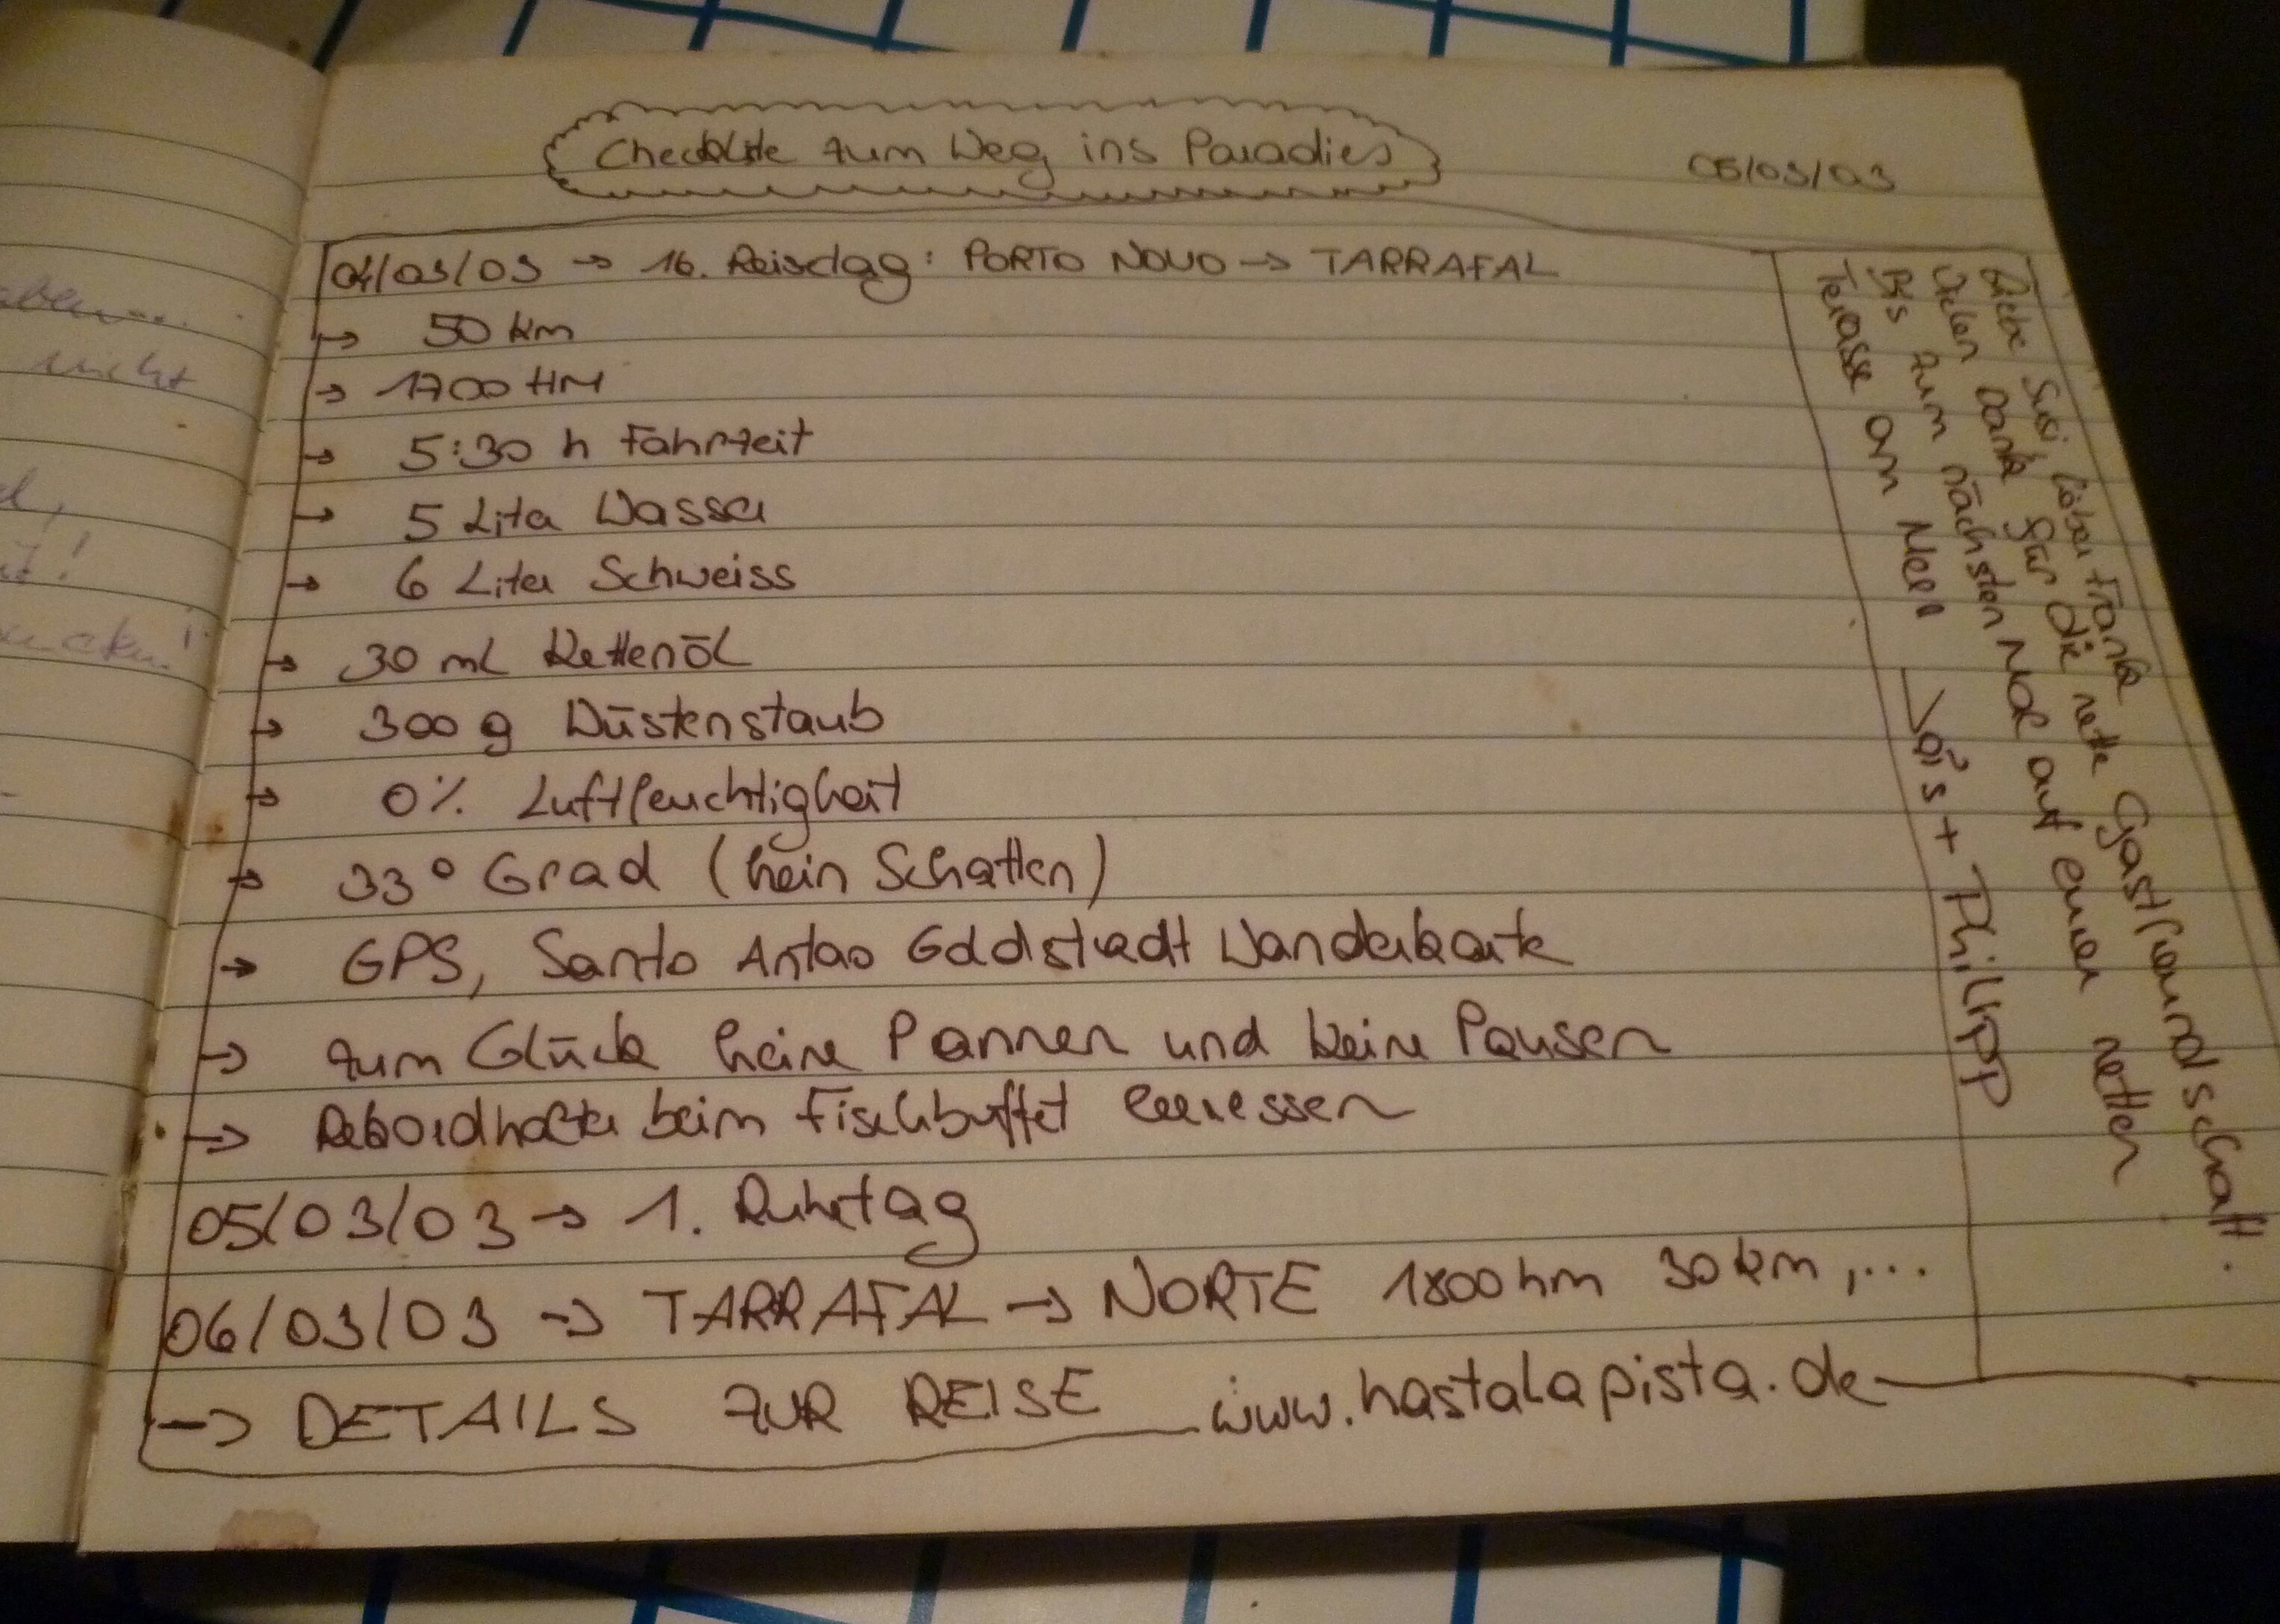 Checkliste zum Weg ins Paradies
05/03/03
04/03/03 → 16. Reisetag: PORTO NOVO → TARRAFAL
→ 50 km
→ 1700 HM
→ 5:30 h Fahrzeit
→ 5 Liter Wasser
→ 6 Liter Schweiss
→ 30 mL Kettenöl
→ 300 g Wüstenstaub
→ 0% Luftfeuchtigkeit
→ 33° Grad (kein Schatten)
→ GPS, Santo Antao Goldstadt Wanderkarte
→ zum Glück keine Pannen und keine Pausen
→ Rekordhalter beim Fischbuffet
05/03/03 → 1. Ruhetag
06/03/03 → TARRAFAL → NORTE 1800hm 30km,...
→ DETAILS ZUR REISE www.hastalapista.de
Liebe Susi, lieber Frank
Vielen Dank für die nette Gastfreundschaft.
Bis zum nächsten Mal auf einer netten
Terasse am Meer
+ Philipp
nicht